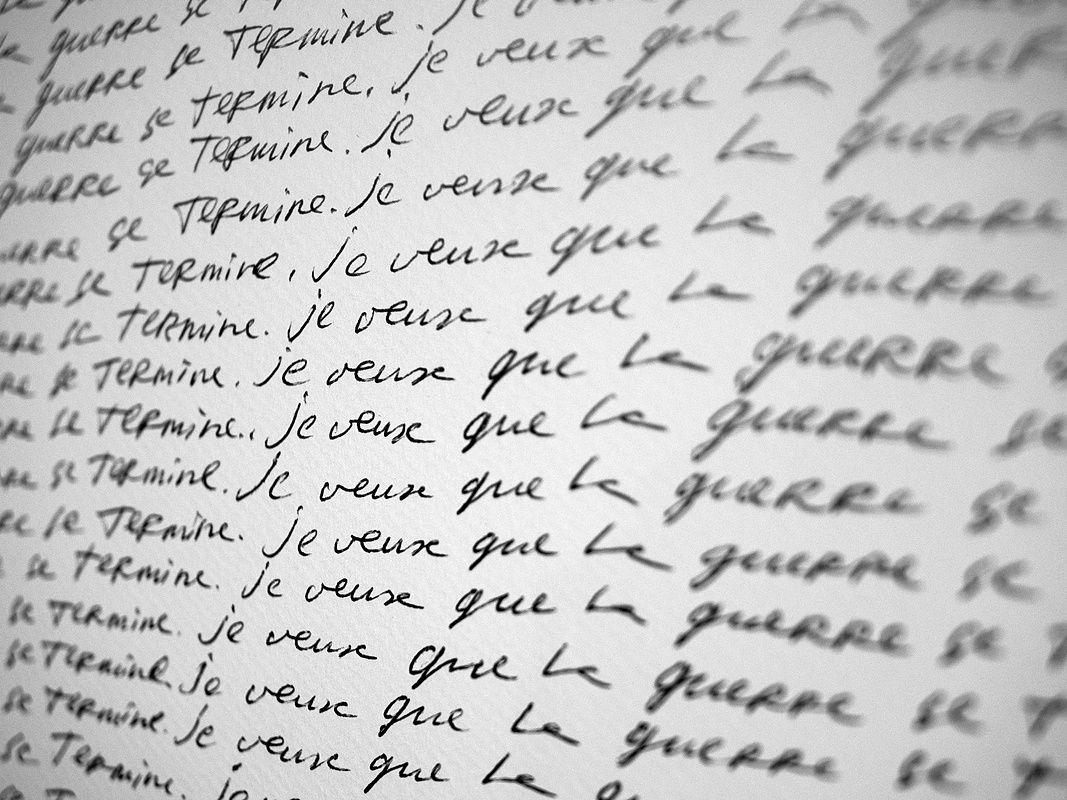 la guerre se Termine. Je
guerre se Termine. je veux que la
guerre se Termine. je veux que la guerre
guerre se Termine. je veux que la guerre
erre se Termine. je veux que la guerre
erre se Termine. je veux que la guerre
re se Termine. je veux que la guerre
re se Termine. je veux que la guerre se
re se Termine. je veux que la guerre se
re se Termine. je veux que la guerre se
se Termine. je veux que la guerre se
se Termine. je veux que la guerre se
se Termine. je veux que la guerre se
se Termine. je veux que la
se Termine. je